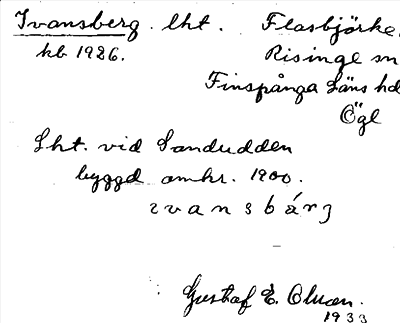 Ivansberg. lht. Flasbjörke,
kb 1926. Risinge sn
Finspånga Läns hd
Ögl
Lht. vid Sandudden
byggd omkr. 1900.
ivansbárj
Gustaf E.
1933